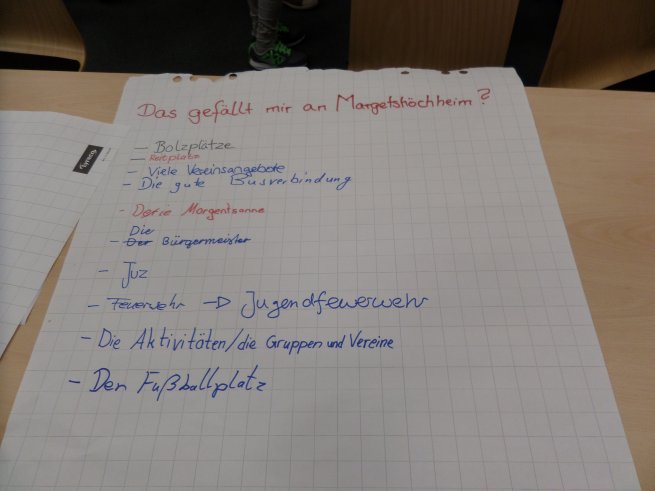 Das gefällt mir an Margetshöchheim?
- Bolzplätze
- Reitplatz
- Viele Vereinsangebote
- Die gute Busverbindung
- Margentsonne
Die
- Der Bürgermeister
- Juz
- Feuerwehr → Jugendfeuerwehr
- Die Aktivitäten/die Gruppen und Vereine
- Den Fußballplatz